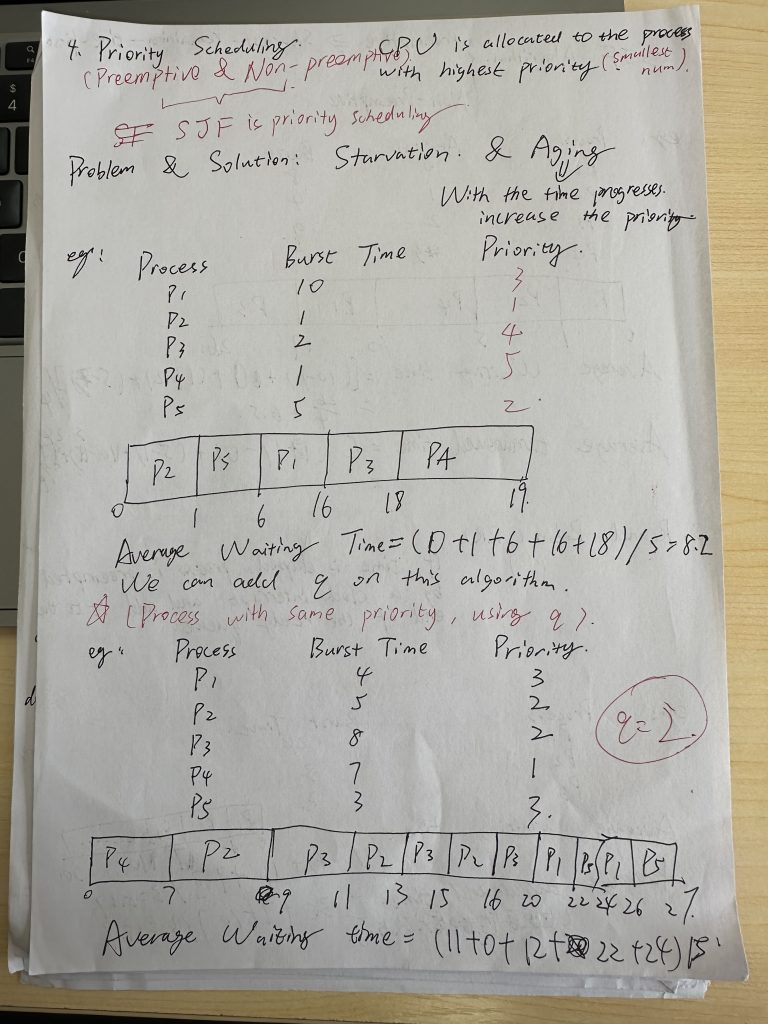 4. Priority Scheduling. CPU is allocated to the process
(Preemptive & Non-preemptive) with highest priority (smallest num).
SJF is priority scheduling
Problem & Solution: Starvation. & Aging
With the time progresses.
increase the priority
eg: Process Burst Time Priority.
P1 10 3
P2 1 1
P3 2 4
P4 1 5
P5 5 2
P2 P5 P1 P3 P4
0 1 6 16 18 19
Average Waiting Time = (0+1+6+16+18)/5=8.2
We can add q on this algorithm.
☆ (Process with same priority, using q).
eg: Process Burst Time Priority.
P1 4 3
P2 5 2
P3 8 2
P4 7 1
P5 3 3
q=2.
P4 P2 P3 P2 P3 P2 P3 P1 P5 P1 P5
0 7 9 11 13 15 16 20 22 24 26 27
Average Waiting time = (11+0+12+ 22+24)/5